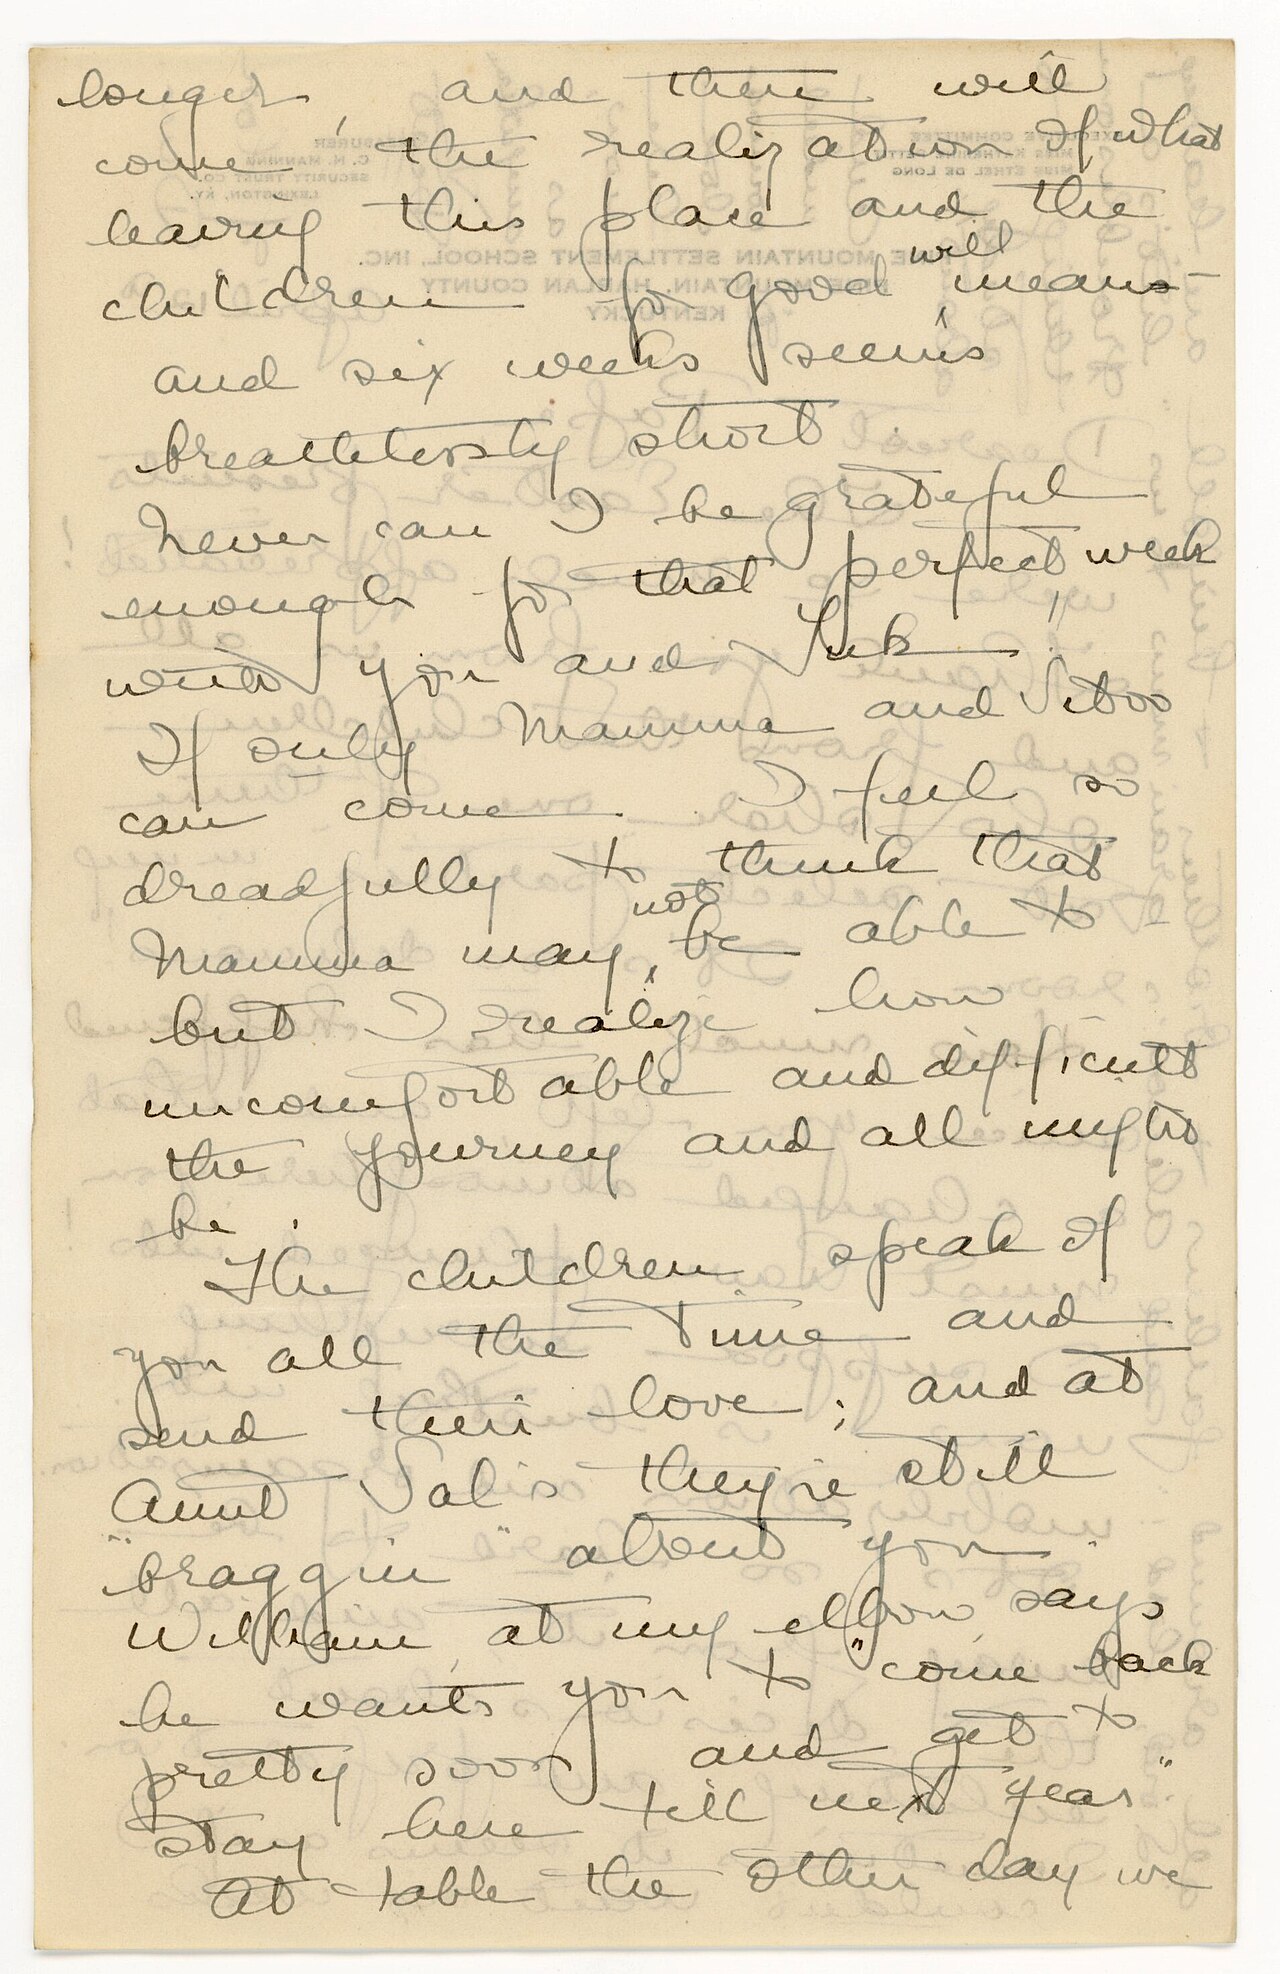 longer, and then will
come the realization of what
leaving this place and the
children for good will means
and six weeks seems
breathlessly short.
Never can I be grateful
enough for that perfect week
with you and
If only Mamma and
can come. I feel so
dreadfully to think that
Mamma may not be able to -
but I realize how
uncomfortable and difficult
the journey and all might
be.
The children speak of
you all the time and
send their love; and at
Aunt Sal's they're still
"braggin" about you.
William, at my elbow, says
he wants you to "come back
pretty soon and get to
stay here till next year"
At table the other day we